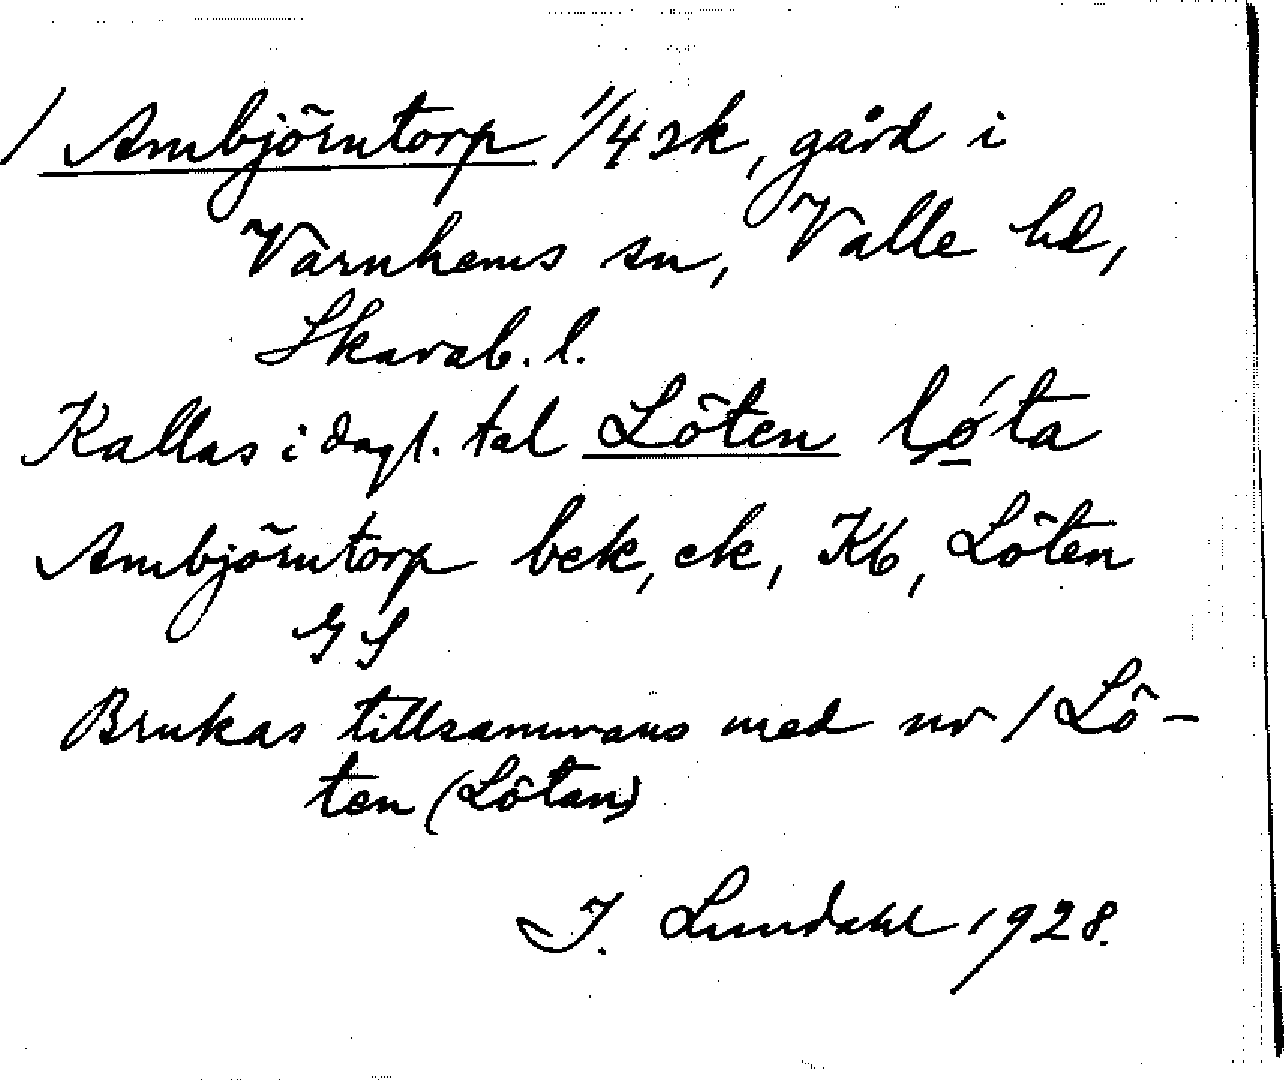 1 Ambjörntorp 1/4 sk, gård i
Varnhems sn, Valle hd,
Skarab. l.
Kallas i dagl. tal Löten lǿ́ta
Ambjörntorp bek, ek, Kb, Löten
GS
Brukas tillsammans med nr 1 Lö-
ten (Lötan)
I. Lundahl 1928.